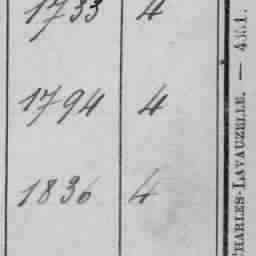 1733 4
1794 4
1836 4
CHARLES-LAVAUZELLE. — 4351.